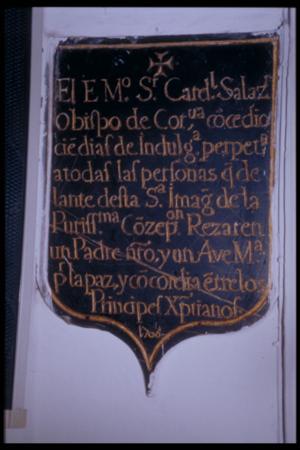 El EMº. Sʳ. Cardˡ. Salaz
Obispo de Corᵘᵃ, cõcedio
ciẽ dias de Indulgᵃ. perpetᵃ
a todas las personas q̃ de
lante desta Sᵃ. Imag̃ de la
Puriss̃ᵐᵃ Cõzepᵒⁿ Rezaren
un Padre nr̃o, y un Ave Mᵃ.
pʳ la paz, y cõcordia ẽtre los
Principes Xp̃tianos.
1706